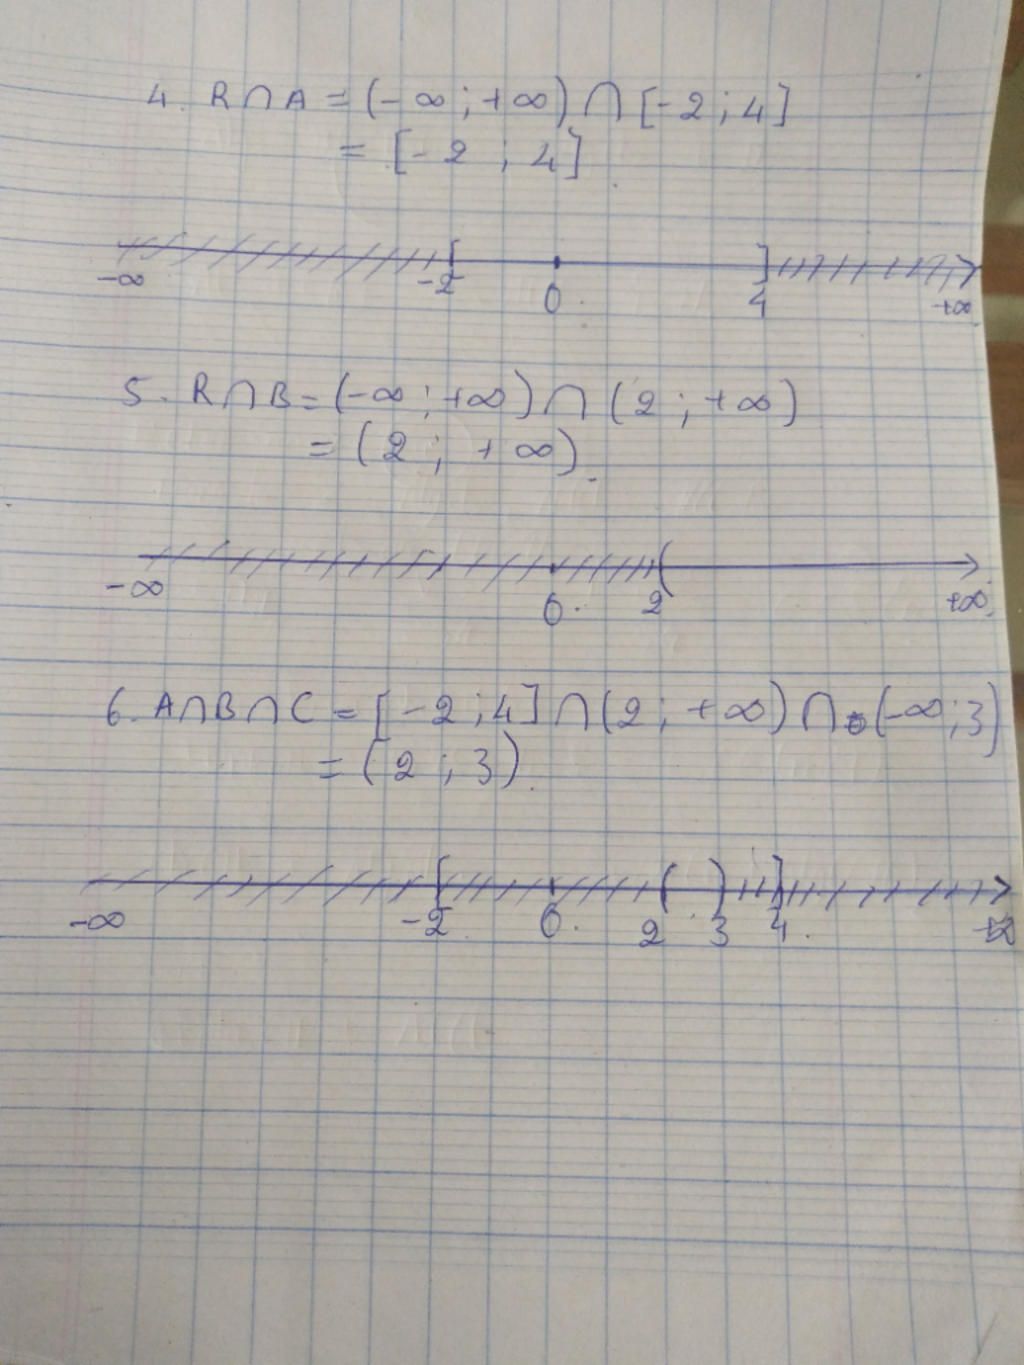 4. R∩A = (-∞ ; +∞) ∩ [-2 ; 4]
= [-2 ; 4]
-∞ -2 0 4 +∞
5. R∩B = (-∞ ; +∞) ∩ (2 ; +∞)
= (2 ; +∞).
-∞ 0 2 +∞
6. A∩B∩C = [-2 ; 4] ∩ (2 ; +∞) ∩ (-∞ ; 3)
= (2 ; 3).
-∞ -2 0 2 3 4 +∞